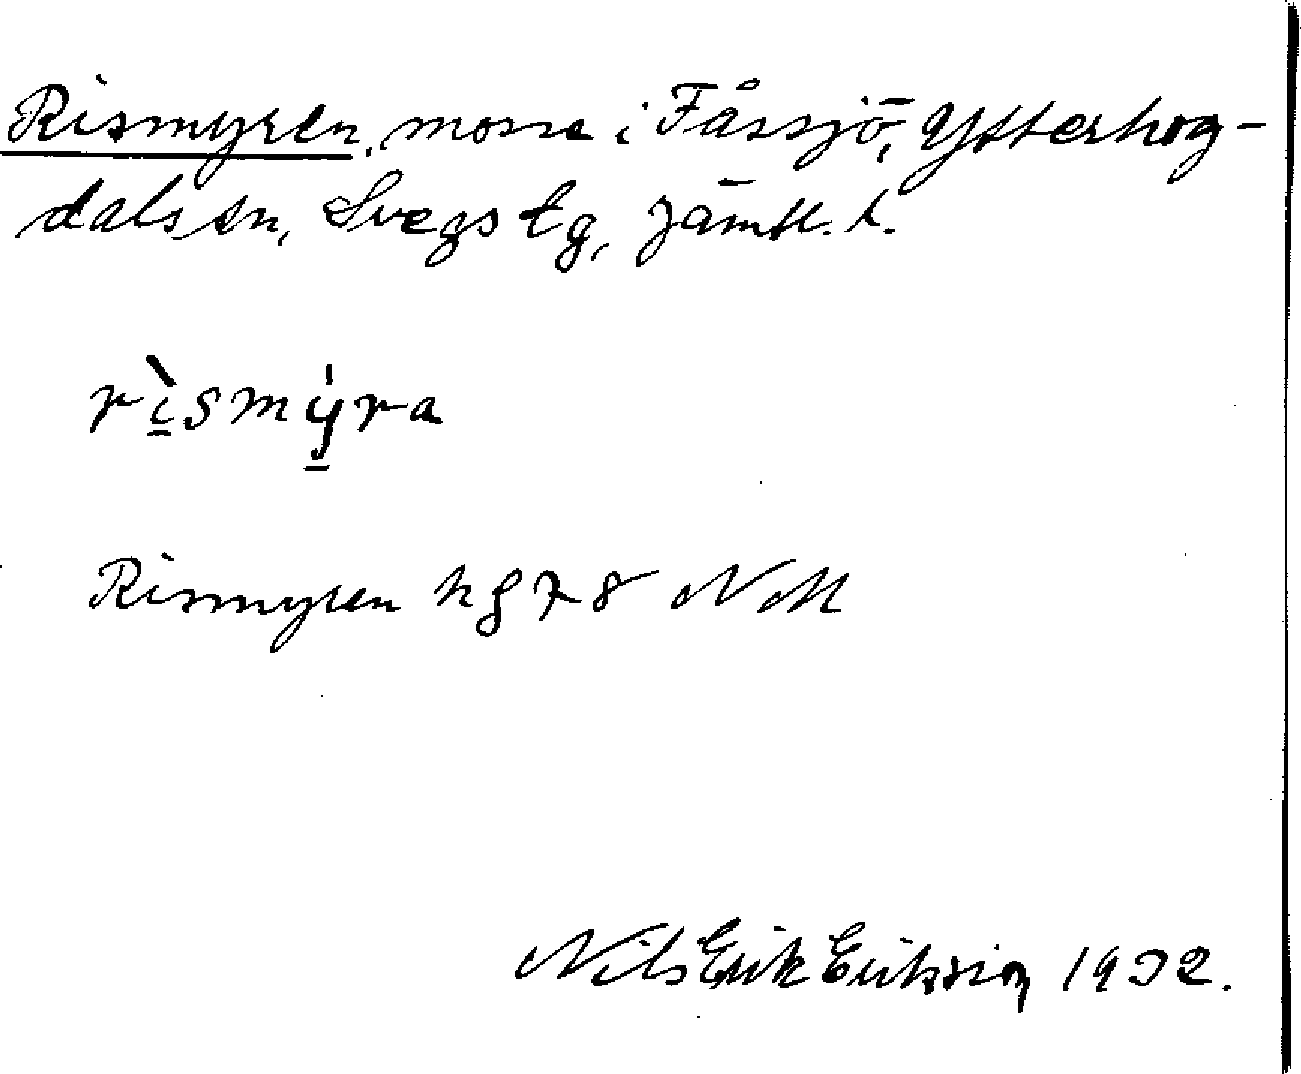 Rismyren, mosse i Fåssjö, Ytterhog-
dals sn, Svegs tg, Jämtl. l.
rìsmy̍ra
Rismyren kg 78 NM
Nils Erik Eriksson 1932.